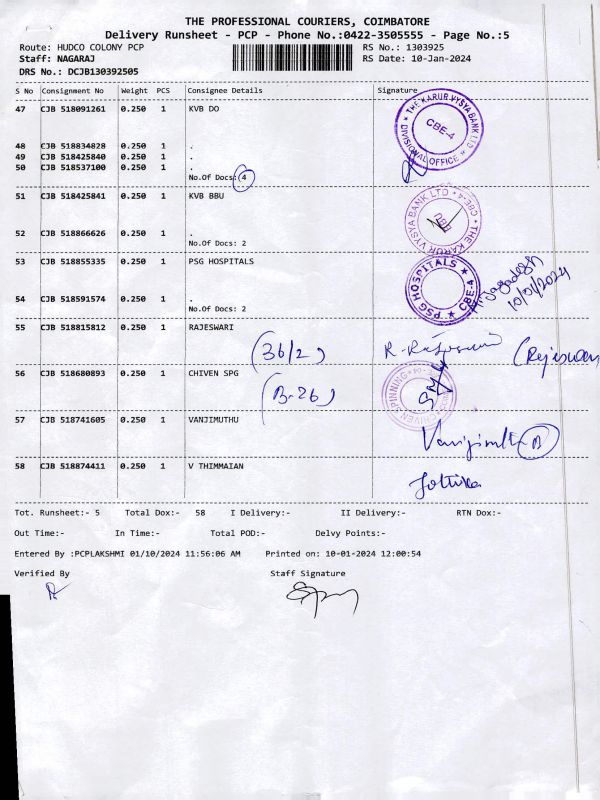 THE PROFESSIONAL COURIERS, COIMBATORE
Delivery Runsheet - PCP - Phone No.:0422-3505555 - Page No.:5
Route: HUDCO COLONY PCP RS No.: 1303925
Staff: NAGARAJ RS Date: 10-Jan-2024
DRS No.: DCJB130392505
S No Consignment No Weight PCS Consignee Details Signature
47 CJB 518091261 0.250 1 KVB DO
THE KARUR VYSYA BANK LTD
CBE-4
DIVISIONAL OFFICE
48 CJB 518834828 0.250 1 .
49 CJB 518425840 0.250 1 .
50 CJB 518537100 0.250 1 .
No.Of Docs: 4
51 CJB 518425841 0.250 1 KVB BBU
THE KARUR VYSYA BANK LTD CBE-4
52 CJB 518866626 0.250 1 .
No.Of Docs: 2
53 CJB 518855335 0.250 1 PSG HOSPITALS
PSG HOSPITALS CBE-4
10/01/2024
54 CJB 518591574 0.250 1 .
No.Of Docs: 2
55 CJB 518815812 0.250 1 RAJESWARI
(36/2)
56 CJB 518680893 0.250 1 CHIVEN SPG
(B-26)
57 CJB 518741605 0.250 1 VANJIMUTHU
58 CJB 518874411 0.250 1 V THIMMAIAN
Tot. Runsheet:- 5 Total Dox:- 58 I Delivery:- II Delivery:- RTN Dox:-
Out Time:- In Time:- Total POD:- Delvy Points:-
Entered By :PCPLAKSHMI 01/10/2024 11:56:06 AM Printed on: 10-01-2024 12:00:54
Verified By Staff Signature